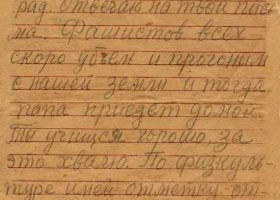 рад. Отвечаю на твои пись
ма. Фашистов всех
скоро убъем и прогоним
с нашей земли и тогда
папа приедет домой.
Ты учишся хорошо, за
это хвалю. По физкуль-
туре имей отметку. от-